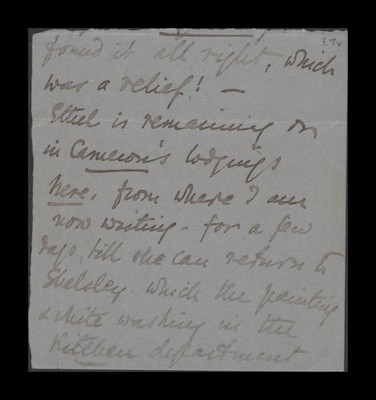 f. 7v
found it all right, which
was a relief! —
Ethel is remaining on
in Cameron's lodgings
here, from where I am
now writing - for a few
days, till she can return to
Shelsley. which the painting
& white washing in the
Kitchen department